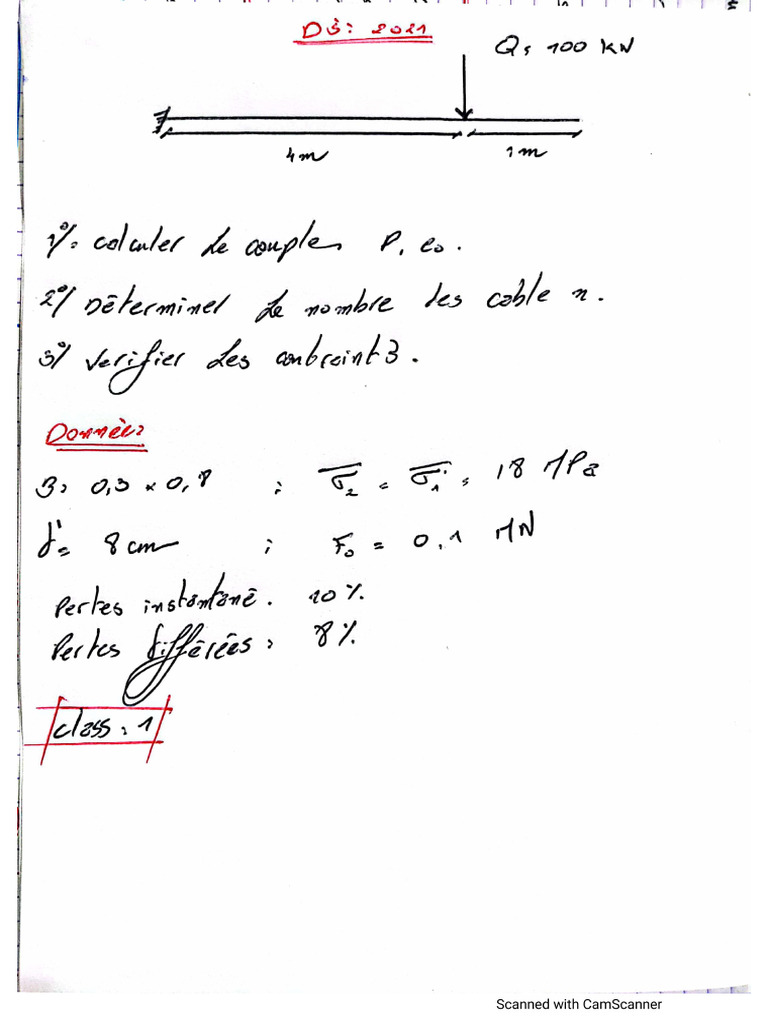 DS: 2021
Q = 100 KN
4m
1m
1°/. calculer le couple P, e₀.
2°/ Déterminer le nombre des cable n.
3°/ Verifier les contraint3.
Données
B = 0,3 × 0,8 ; σ̅₂ = σ̅₁ = 18 MPa
d' = 8 cm ; F₀ = 0,1 MN
Pertes instantané. 10 %
Pertes différées = 8%
class: 1
Scanned with CamScanner